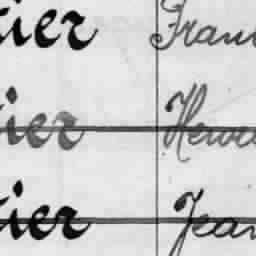 tier Fran
tier Henri
tier Jean